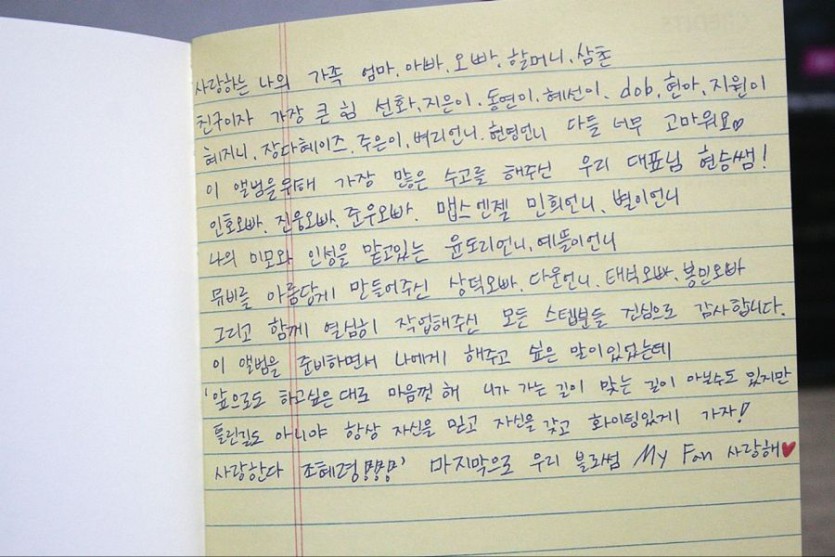 사랑하는 나의 가족 엄마, 아빠, 오빠, 할머니, 삼촌
친구이자 가장 큰 힘 선화, 지은이, 동연이, 혜선이, dob, 현아, 지원이
혜지니, 장다혜이즈, 주은이, 벼리언니, 현영언니 다들 너무 고마워요♡
이 앨범을위해 가장 많은 수고를 해주신 우리 대표님 현승쌤!
인호오빠, 진웅오빠, 준우오빠, 맵스엔젤 민희언니, 별이언니
나의 미모와 인성을 맡고있는 윤도리언니, 예뜰이언니
뮤비를 아름답게 만들어주신 상덕오빠, 다운언니, 태석오빠, 봉민오빠
그리고 함께 열심히 작업해주신 모든 스텝분들 진심으로 감사합니다.
이 앨범을 준비하면서 나에게 해주고 싶은 말이있었는데
'앞으로도 하고싶은대로 마음껏 해 니가 가는 길이 맞는 길이 아닐수도 있지만
틀린길도 아니야 항상 자신을 믿고 자신을 갖고 화이팅있게 가자!
사랑한다 조혜령' 마지막으로 우리 블러썸 My Fan 사랑해♥